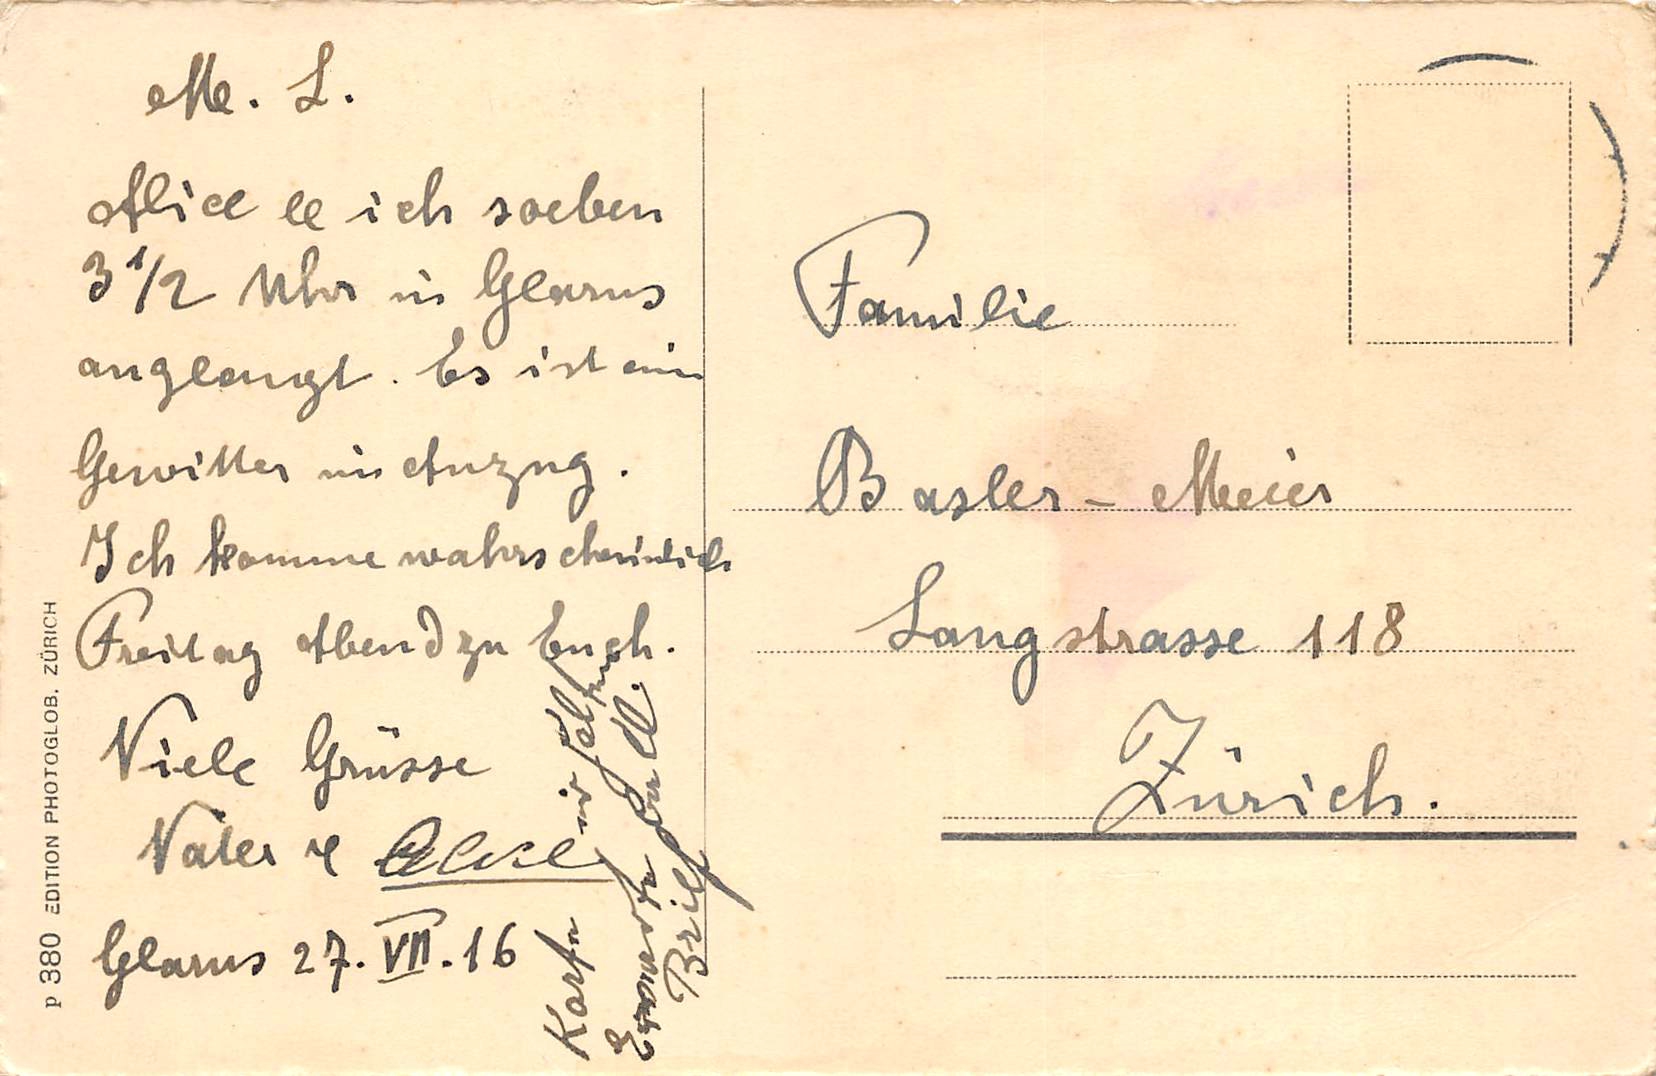 M. L.
Alice & ich soeben
3 1/2 Uhr in Glarus
anglangt. Es ist ein
Gewitter im Anzug.
Ich komme wahrscheinlich
Freitag Abend zu Euch.
Viele Grüsse
Vater &
Glarus 27. VII. 16
Karte
Erwarte
Brief
Familie
Basler-Meier
Langstrasse 118
Zürich.
p 380 EDITION PHOTOGLOB. ZÜRICH